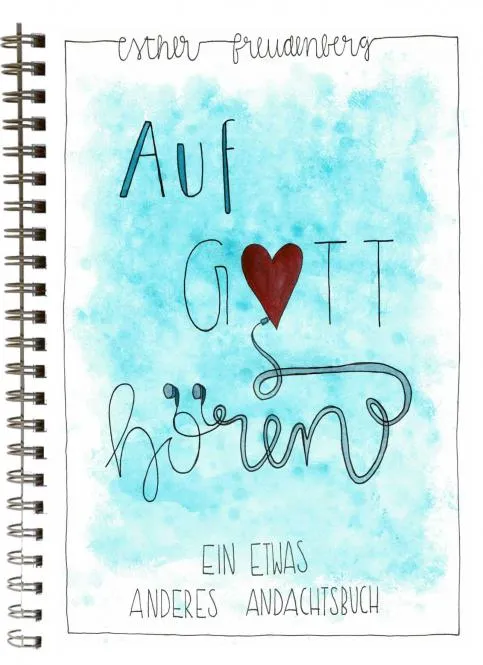 esther freudenberg
AUF
GOTT
hören
EIN ETWAS
ANDERES ANDACHTSBUCH